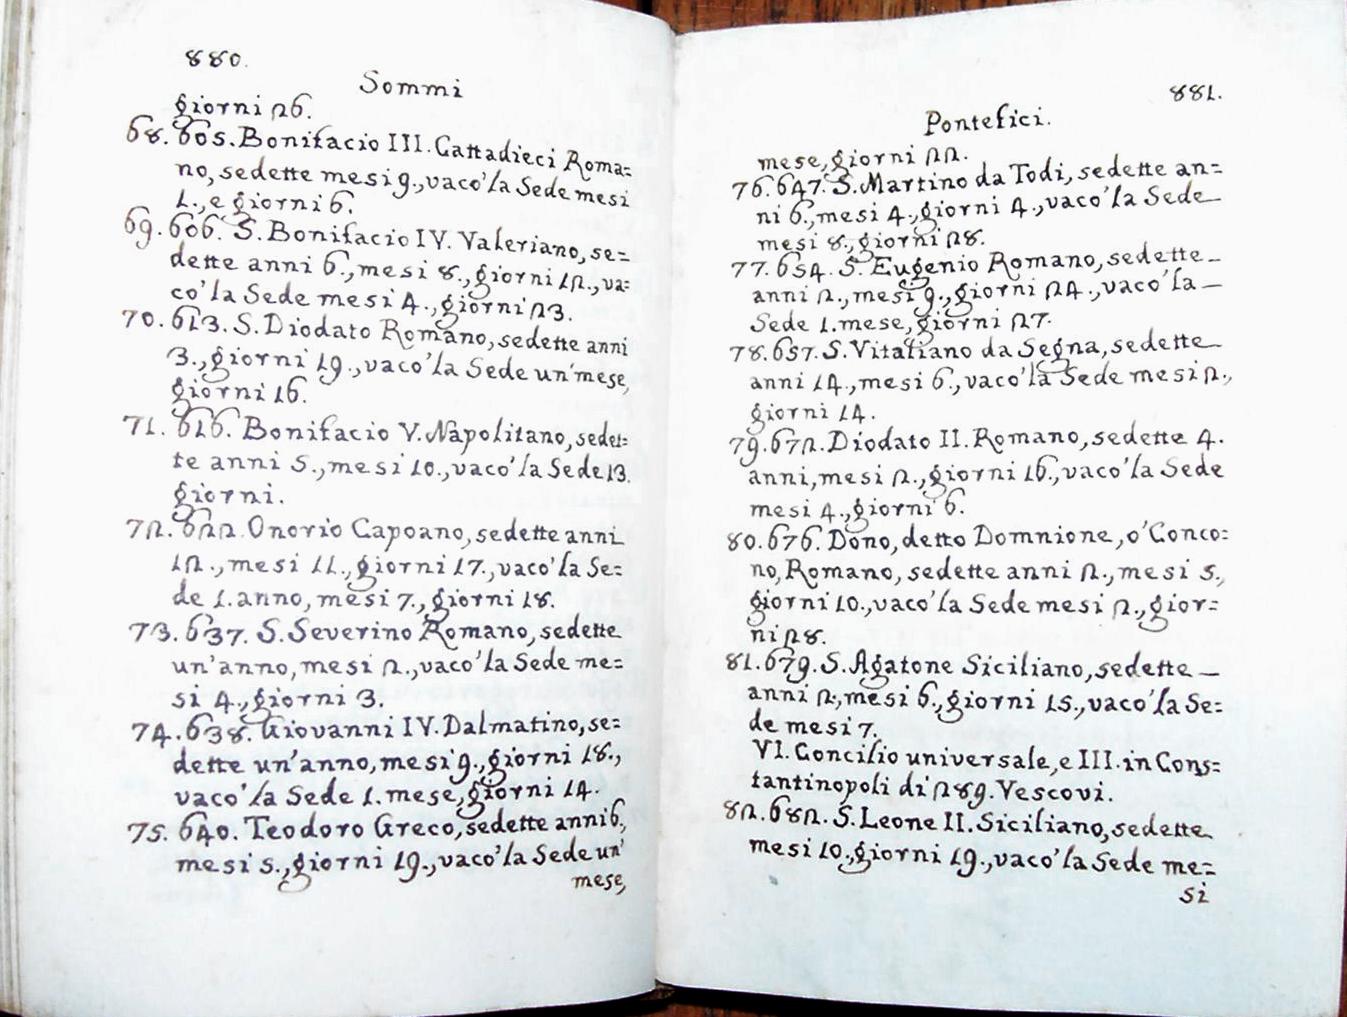 880.
Sommi
giorni 26.
68. 605. Bonifacio III. Cattadieci Roma=
no, sedette mesi 9., vacò la Sede mesi
1., e giorni 6.
69. 606. S. Bonifacio IV. Valeriano, se=
dette anni 6., mesi 8., giorni 12., va=
cò la Sede mesi 4., giorni 23.
70. 613. S. Diodato Romano, sedette anni
3., giorni 19., vacò la Sede un mese,
giorni 16.
71. 616. Bonifacio V. Napolitano, sedet=
te anni 5., mesi 10., vacò la Sede 13.
giorni.
72. 622. Onorio Capoano, sedette anni
12., mesi 11., giorni 17., vacò la Se=
de 1. anno, mesi 7., giorni 18.
73. 637. S. Severino Romano, sedette
un'anno, mesi 2., vacò la Sede me=
si 4., giorni 3.
74. 638. Giovanni IV. Dalmatino, se=
dette un'anno, mesi 9., giorni 18.,
vacò la Sede 1. mese, giorni 14.
75. 640. Teodoro Greco, sedette anni 6.,
mesi 5., giorni 19., vacò la Sede un'
mese,
881.
Pontefici.
mese, giorni 22.
76. 647. S. Martino da Todi, sedette an=
ni 6., mesi 4., giorni 4., vacò la Sede
mesi 8., giorni 28.
77. 654. S. Eugenio Romano, sedette
anni 2., mesi 9., giorni 24., vacò la
Sede 1. mese, giorni 27.
78. 657. S. Vitaliano da Segna, sedette
anni 14., mesi 6., vacò la Sede mesi 2.,
giorni 14.
79. 672. Diodato II. Romano, sedette 4.
anni, mesi 2., giorni 16., vacò la Sede
mesi 4., giorni 6.
80. 676. Dono, detto Domnione, ò Conco=
no, Romano, sedette anni 2., mesi 5.,
giorni 10., vacò la Sede mesi 2., gior=
ni 28.
81. 679. S. Agatone Siciliano, sedette
anni 2., mesi 6., giorni 15., vacò la Se=
de mesi 7.
VI. Concilio universale, e III. in Cons=
tantinopoli di 289. Vescovi.
82. 682. S. Leone II. Siciliano, sedette
mesi 10., giorni 19., vacò la Sede me=
si